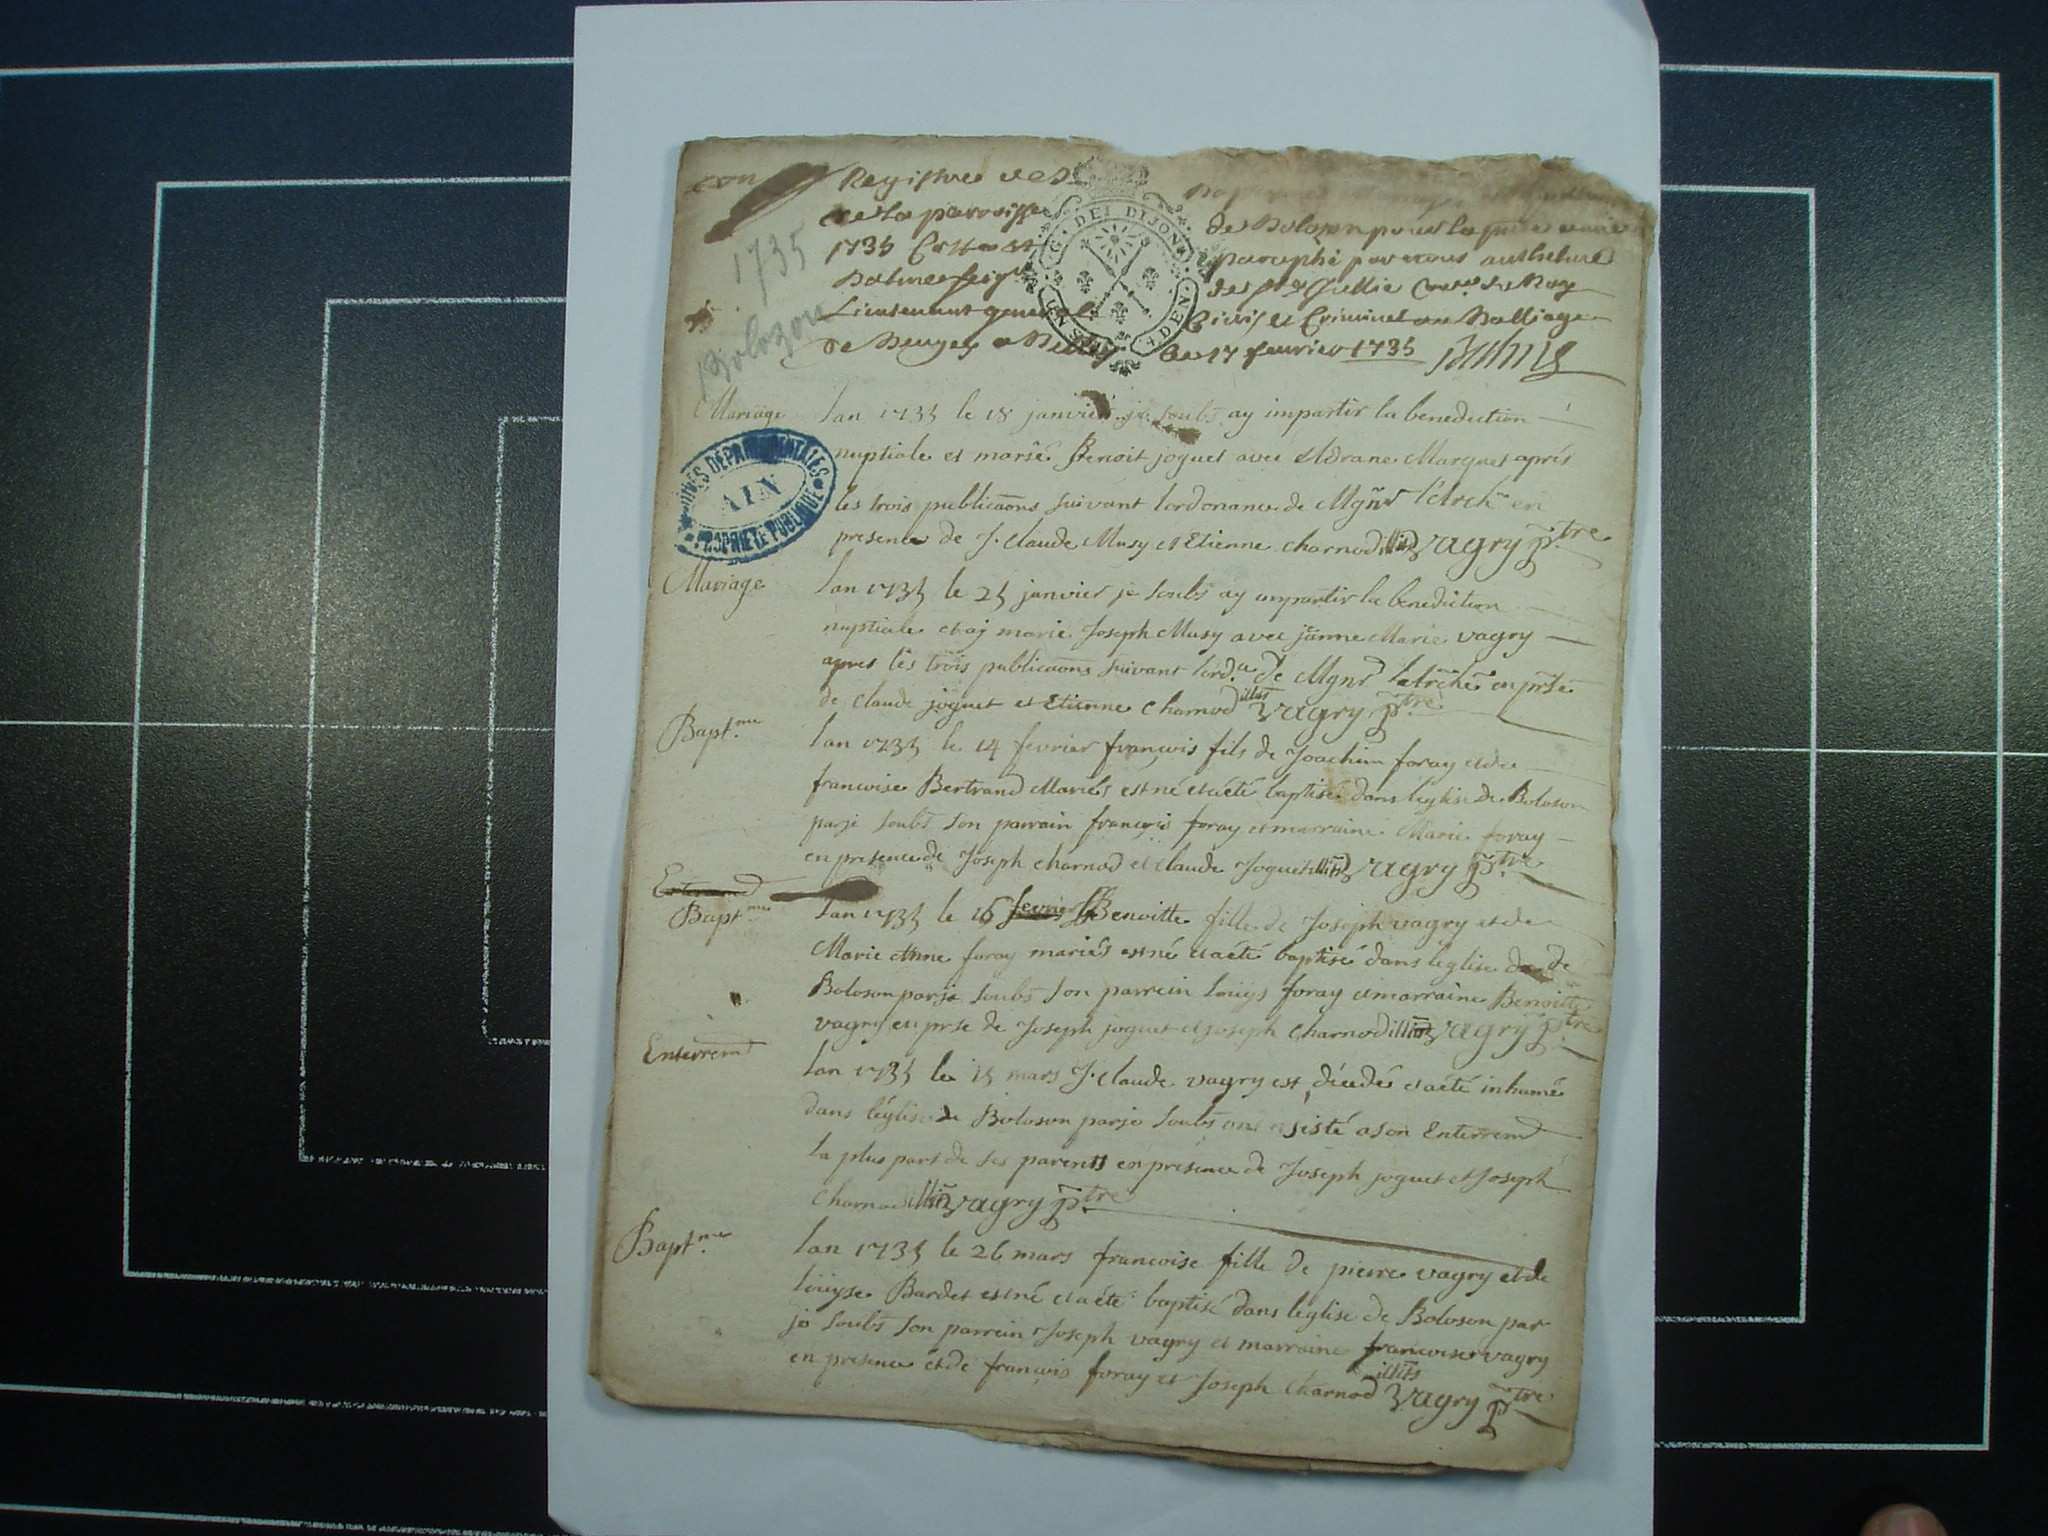 Registre des
de la paroisse de Bolozon pour la presente année
1735 Cotté et paraphé par nous anthelme
Balme seigr des stes Jullie Coner du Roy
Lieutenant general Civil et Criminel au Balliage
de Beugey a Belley ce 17 feuvrier 1735
1735
Bolozon
G. DEI DIJON
UN S DEN
Mariage
lan 1735 le 18 janvier je soubs ay impartir la benediction
nuptiale et marié Benoit joguet avec Marguet aprés
ARCHIVES DÉPARTEMENTALES
AIN
PROPRIÉTÉ PUBLIQUE
les trois publicaons suivant lordonance de Mgnr lArch en
presence de J. claude Musy et Etienne charnod illits vagry ptre
Mariage
lan 1735 le 25 janvier je soubs ay impartir la benediction
nuptiale et aÿ marie Joseph Musy avec janne Marie vagry
apres les trois publicaons suivant lord.ce de Mgnr lArche en prse
de claude joguet et Etienne charnod illits vagry ptre
Bapt.me
lan 1735 le 14 fevrier françois fils de Joachim foray et de
francoise Bertrand Mariés est né et a été baptisé dans leglise de Boloson
par je soubs son parrain françois foray et marraine Marie foray
en presence de Joseph charnod et claude Joguet illits vagry ptre
Enterremd
Baptme
lan 1735 le 16 fevrier Benoitte fille de Joseph vagry et de
Marie Anne foray mariés est né et a été baptisé dans leglise de
Boloson par je soubs son parrein loüys foray et marraine Benoitte
vagry en prse de Joseph joguet et joseph charnod illits vagry ptre
Enterremd
lan 1735 le 15 mars J. claude vagry est décedé et a été inhumé
dans léglise de Boloson par je soubs ont asisté a son Enterremd
la plus part de ses parents en presence de Joseph joguet et Joseph
charnod illits vagry ptre
Bapt.me
lan 1735 le 26 mars francoise fille de pierre vagry et de
loüyse Bardet est né et a été baptisé dans leglise de Boloson par
je soubs son parrein Joseph vagry et marraine francoise vagry
en presence et de françois foray et Joseph charnod illits vagry ptre